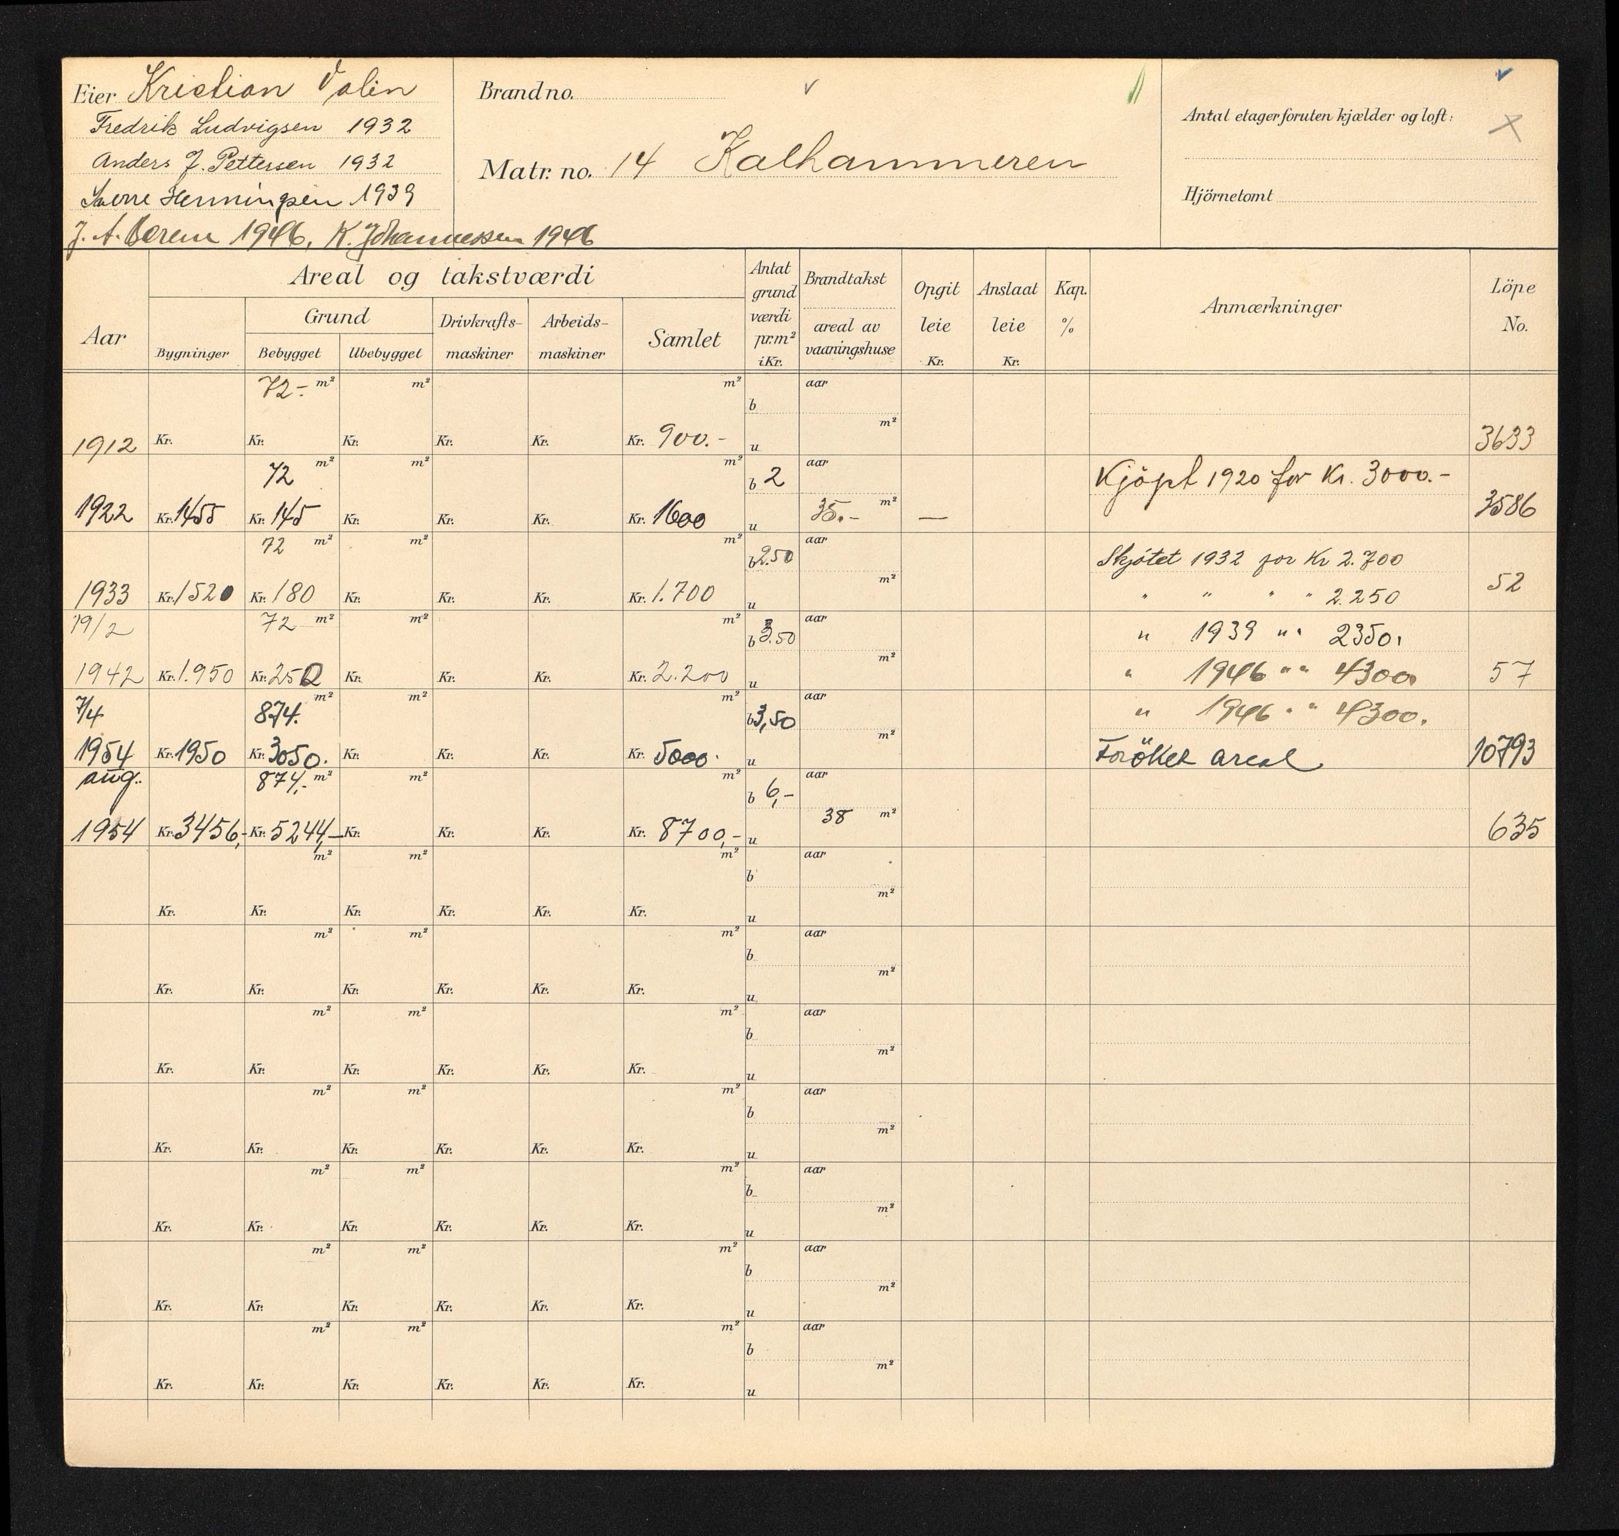 Eier Kristian Valin
Fredrik Ludvigsen 1932
Anders J. Pettersen 1932
Henningsen 1939
J. A. 1946, K. Johannessen 1946
Brand no.
Matr. no. 14 Kalhammeren
Antal etager foruten kjælder og loft:
Hjörnetomt
Aar
Areal og takstværdi
Bygninger
Grund
Bebygget Ubebygget
Drivkrafts-maskiner
Arbeids-maskiner
Samlet
Antat grund værdi pr. m² i Kr.
Brandtakst
areal av vaaningshuse
Opgit leie Kr.
Anslaat leie Kr.
Kap. %
Anmærkninger
Löpe No.
72.- m² m² m² b aar
1912 Kr. Kr. Kr. Kr. Kr. Kr. 900.- u m² 3633
72 m² m² m² b 2 aar Kjöpt 1920 for Kr. 3000.-
1922 Kr. 1455 Kr. 145 Kr. Kr. Kr. Kr. 1600 u 35.- m² — 3586
72 m² m² m² b 2.50 aar Skjötet 1932 for Kr 2.700
1933 Kr. 1520 Kr. 180 Kr. Kr. Kr. Kr. 1.700 u m² " " " " 2.250 52
19/2 72 m² m² m² b 3.50 aar " 1939 " " 2350.
1942 Kr. 1.950 Kr. 250 Kr. Kr. Kr. Kr. 2.200 u m² " 1946 " " 4300. 57
7/4 874. m² m² m² b 3,50 aar " 1946 " " 4300.
1954 Kr. 1950 Kr. 3050. Kr. Kr. Kr. Kr. 5000. u m² Foröket areal 10793
aug. 874,- m² m² m² b 6,- aar
1954 Kr. 3456,- Kr. 5244,- Kr. Kr. Kr. Kr. 8700,- u 38 m² 635
m² m² m² b aar
Kr. Kr. Kr. Kr. Kr. Kr. u m²
m² m² m² b aar
Kr. Kr. Kr. Kr. Kr. Kr. u m²
m² m² m² b aar
Kr. Kr. Kr. Kr. Kr. Kr. u m²
m² m² m² b aar
Kr. Kr. Kr. Kr. Kr. Kr. u m²
m² m² m² b aar
Kr. Kr. Kr. Kr. Kr. Kr. u m²
m² m² m² b aar
Kr. Kr. Kr. Kr. Kr. Kr. u m²
m² m² m² b aar
Kr. Kr. Kr. Kr. Kr. Kr. u m²